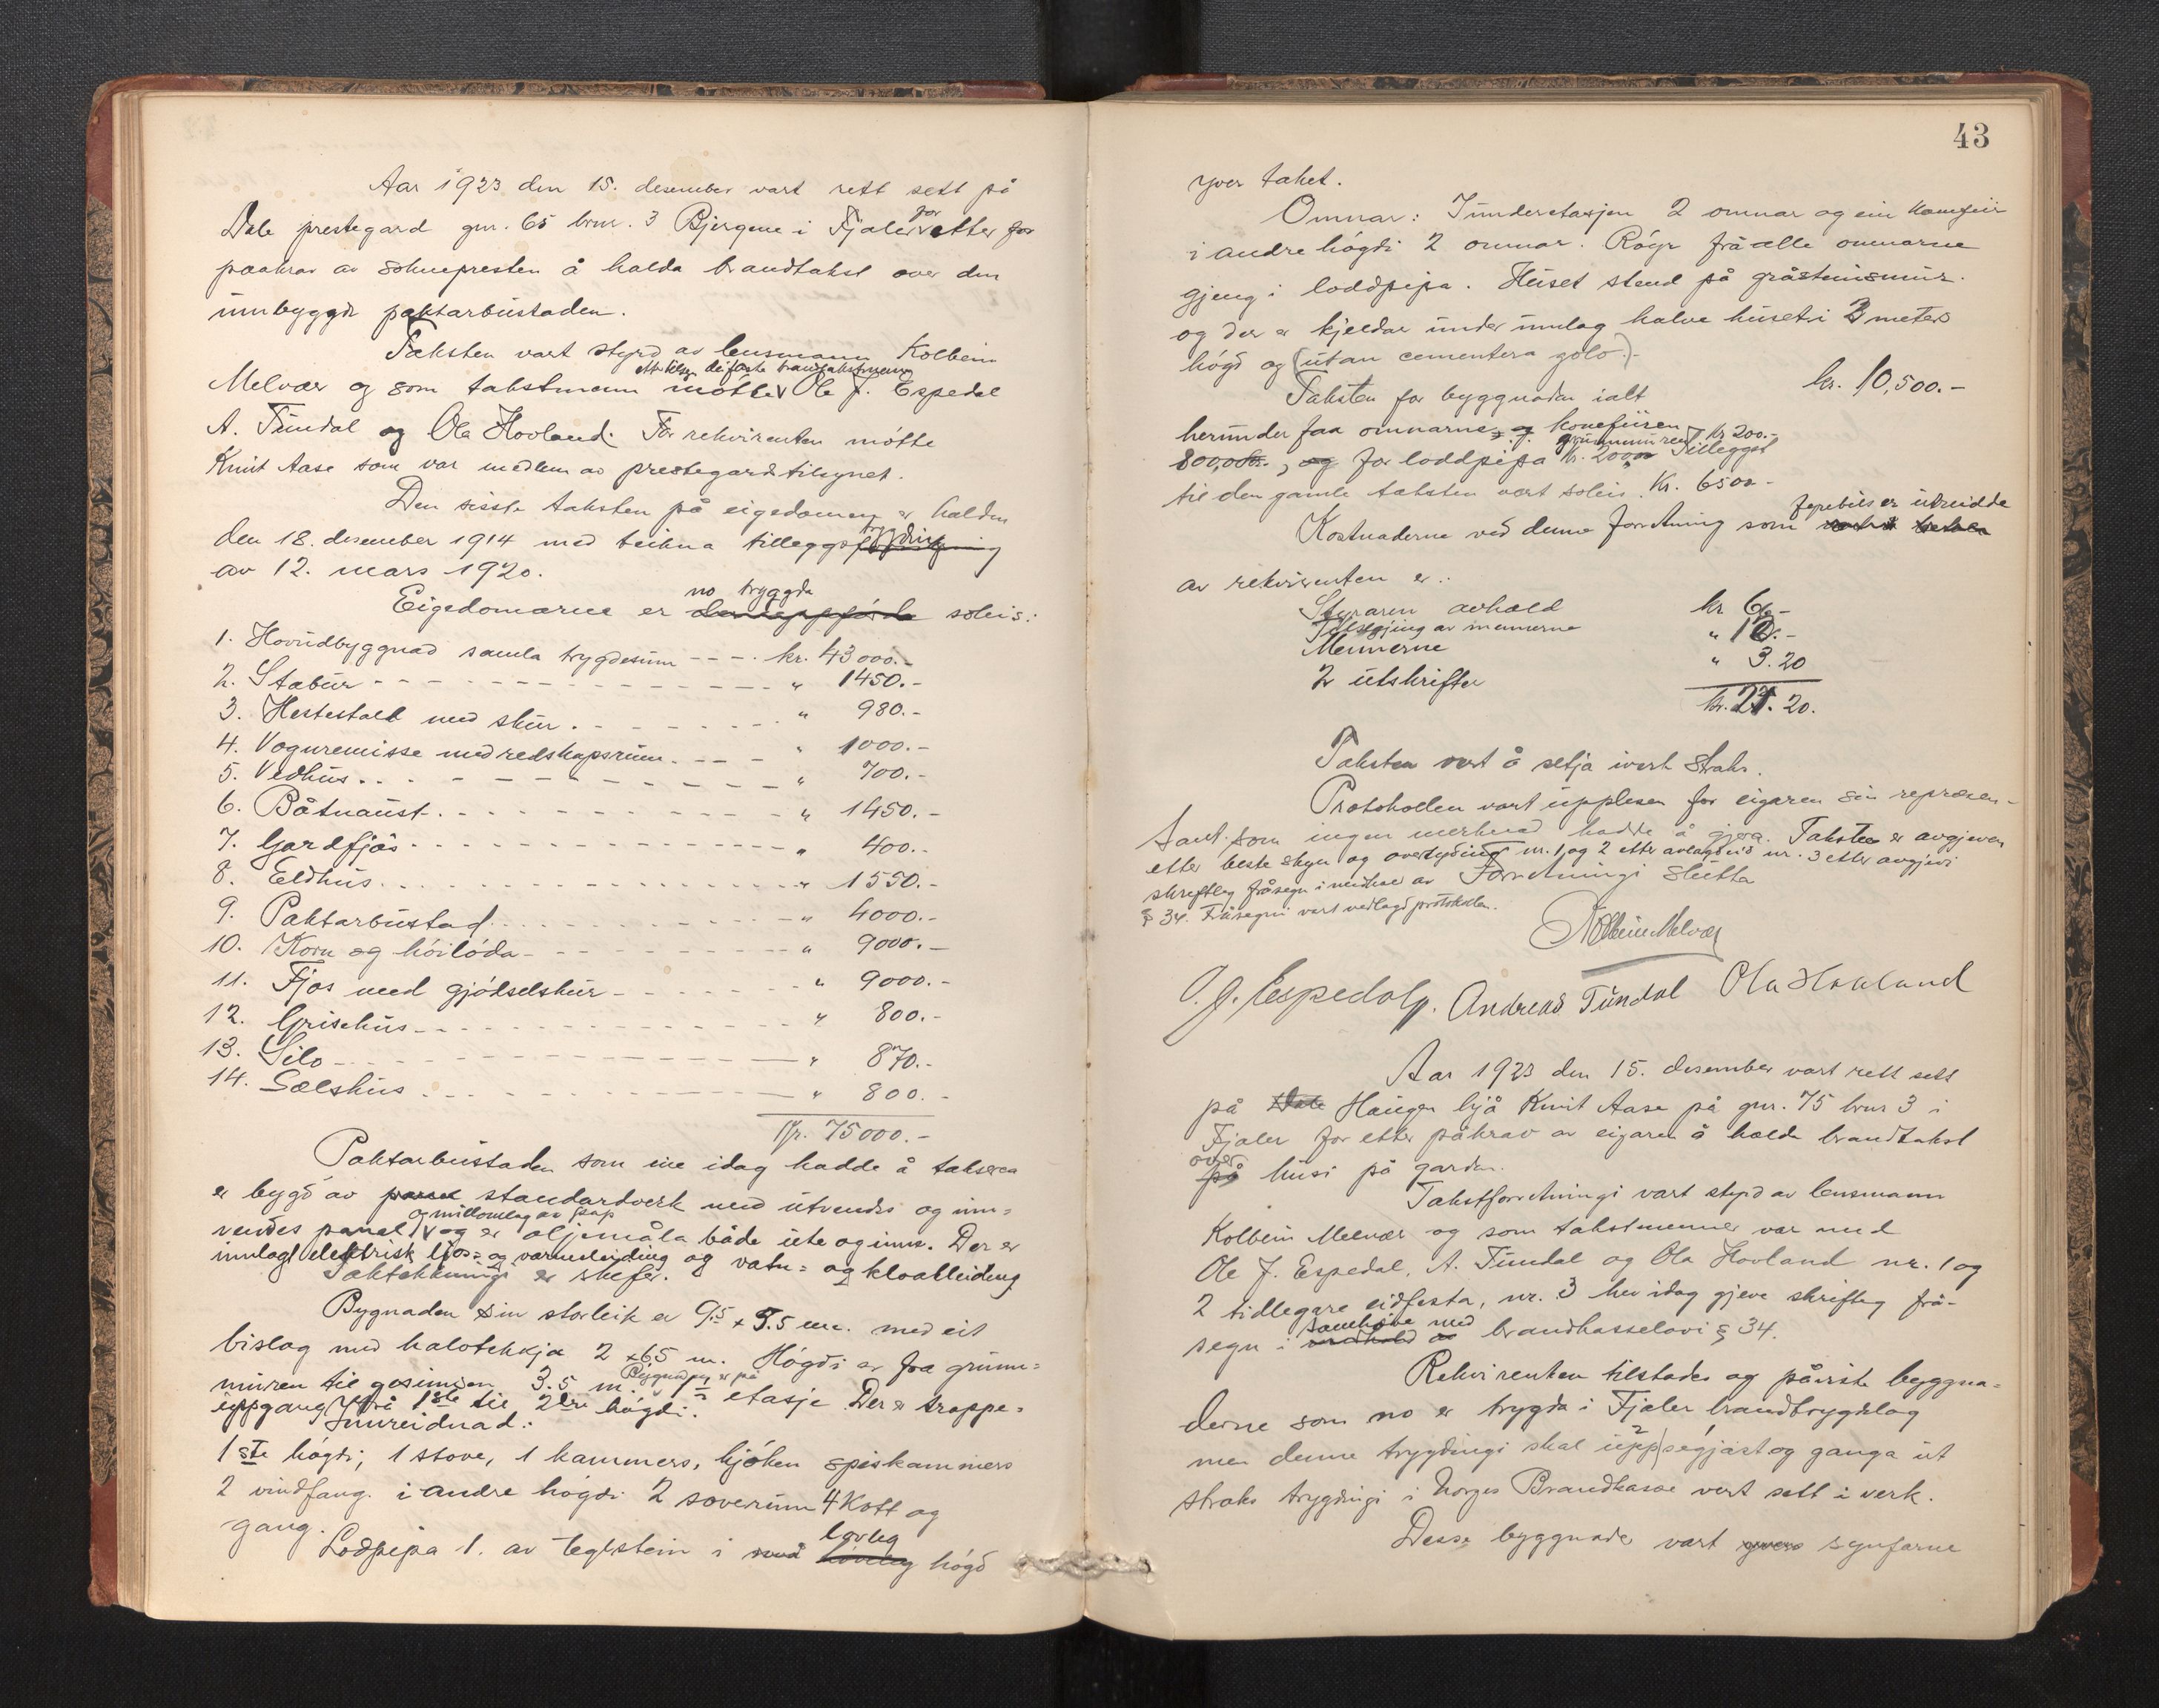 Aar 1923 den 15. desember vart rett sett på
Dale prestegard gnr. 65 brnr. 3 Bjergene i Fjaler for etter
paakrav av soknepresten å halda brandtakst over den
umbygde paktarbustaden.
Taksten vart styrd av lensmann Kolbein
Melvær og som takstmenn møtte Ole J. Espedal
A. Tundal og Ola Hovland. For rekvirenten møtte
Knut Aase som var medlem av prestegardstilsynet.
Den siste taksten på eigedomen er halden
den 18. desember 1914 med tilleggstrygding
av 12. mars 1920.
Eigedomarne er no trygda soleis:
1. Hovudbyggnad samla trygdesum - - - kr. 43000.-
2. Stabur - - - " 1450.-
3. Hestestall med skur. - - - " 980.-
4. Vognremisse med redskapsrum. - - - " 1000.-
5. Vedhus. - - - " 700.-
6. Båtnaust. - - - " 1450.-
7. Gardfjøs - - - " 400.-
8. Eldhus. - - - " 1550.-
9. Paktarbustad - - - " 4000.-
10. Korn og høiløda - - - " 9000.-
11. Fjøs med gjødselskur - - - " 9000.-
12. Grisehus - - - " 800.-
13. Silo - - - " 870.-
14. Sælshus - - - " 800.-
Kr. 75000.-
Paktarbustaden som me idag hadde å taksera
er bygd av standardverk med utvendes og inn=
vendes panel og er oljemåla både ute og inne. Der er
innlagt elektrisk ljos= og varmeleiding og vatn= og kloakleiding
Taktekkingi er skefer.
Bygnaden sin storleik er 9.5 x 7.5 m. med eit
bislag med halvtekkja 2 x 65 m. Høgdi er fra grunn=
muren til gesimsen 3.5 m. Bygnaden er på 1 1/2 etasje. Der er trappe=
uppgang frå 1ste til 2dre høgdi.
Innreidnad:
1ste høgdi; 1 stove, 1 kammers, kjøken spiskammers
2 vindfang. i andre høgdi 2 soverum 4 Kott og
gang.
Lodpipa 1. av teglstein i lovleg høgd
43
yver taket.
Omnar: I understasjen 2 omnar og ein komfuir
i andre høgdi 2 omnar. Røyr frå alle omnarne
gjeng i loddpipa. Huset stend på gråsteinsmur.
og der er kjeldar under innlag halve huset i 2 meters
høgd og (utan cementera golv).-
Taksten for byggnaden ialt kr. 10,500.-
herunder faa omnarne, og komfuiren
800,00kr., og for loddpipa kr. 200,- grunnmuren kr 200.- Tillegget
til den gamle taksten vart soleis. Kr. 6500 -
Kostnaderne ved denne forretning som
av rekvirenten er:
Styraren avhald kr 6,-
Tilsegjing av mennerne
Mennerne " 12.-
2 utskrifter " 3.20
kr. 21. 20.
Taksten vert å setja iverk straks.
Protokollen vart upplesen for eigaren sin represen-
tant. som ingen merknad hadde å gjera. Taksten er avgjeven
etter beste skyn og overtyding nr. 1 og 2 etter avlagd eid nr. 3 etter avgjevi
skriftleg fråsegn i medhald av
§ 34. Fråsegni vart vedlagd protokollen. Forretningi slutta
Kolbein Melvær
O. J. Espedal. Andreas Tundal Ola Hovland
Aar 1923 den 15. desember vart rett sett
på Haugen hjå Knut Aase på gnr. 75 brnr 3 i
Fjaler for etter påkrav av eigaren å halda brandtakst
over husi på garden.
Takstforretningi vart styrd av lensmann
Kolbein Melvær og som takstmenner var med
Ole J. Espedal, A. Tundal og Ola Hovland nr. 1 og
2 tidlegare eidfesta, nr. 3 hev idag gjeve skriftleg frå-
segn i samhøve med brandkasselovi § 34.
Rekvirenten tilstades og påviste byggna=
derne som no er trygda i Fjaler brandtrygdelag
men denne trygdingi skal uppsegjast og ganga ut
straks trygdingi i Norges Brandkasse vert sett i verk.
Desse byggnade vart synfarne